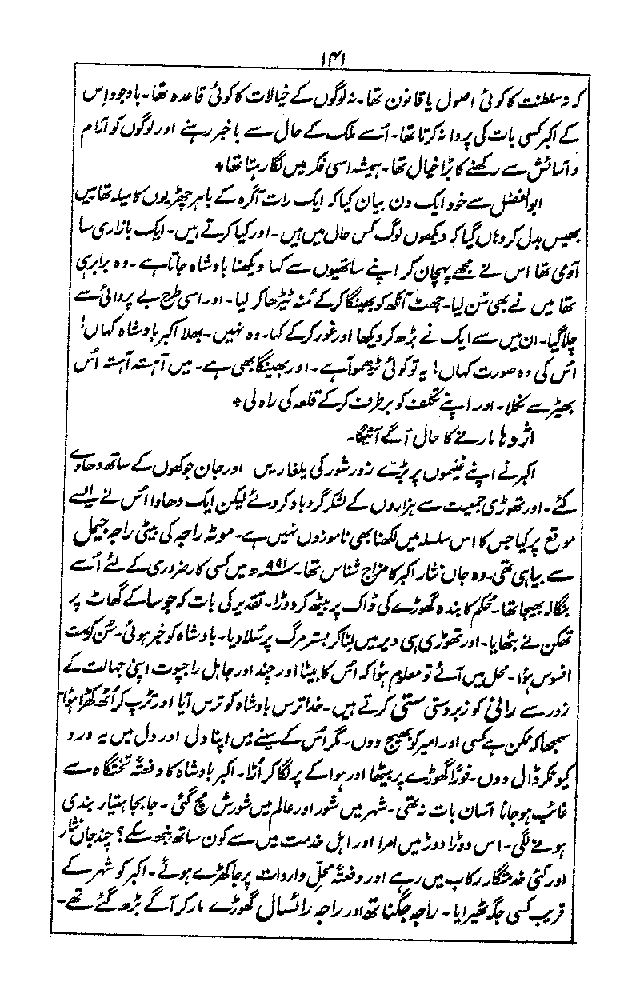 ۱۴۱
کہ نہ سلطنت کا کوئی اصول یا قانون تھا۔ نہ لوگوں کے خیالات کا کوئی قاعدہ تھا۔ باوجود اس
کے اکبر کسی بات کی پروا نہ کرتا تھا۔ اُسے ملک کے حال سے باخبر رہنے اور لوگوں کو آرام
و آسائش سے رکھنے کا بڑا خیال تھا۔ ہمیشہ اسی فکر میں لگا رہتا تھا ٭
ابوالفضل سے خود ایک دن بیان کیا کہ ایک رات آگرہ کے باہر چھڑیوں کا میلہ تھا میں
بھیس بدل کر وہاں گیا کہ دیکھوں لوگ کس حال میں ہیں۔ اور کیا کرتے ہیں۔ ایک بازاری سا
آدمی تھا اس نے مجھے پہچان کر اپنے ساتھیوں سے کہا دیکھنا بادشاہ جاتا ہے۔ وہ برابر ہی
تھا میں نے بھی سن لیا۔ جھٹ آنکھ کو بھینگا کر کے مُنہ ٹیڑھا کر لیا۔ اور اسی طرح بے پروائی سے
چلا گیا۔ ان میں سے ایک نے بڑھ کر دیکھا اور غور کر کے کہا۔ وہ نہیں۔ بھلا اکبر بادشاہ کہاں!
اُس کی وہ صورت کہاں! یہ تو کوئی ٹیڑھموا ہے۔ اور بھینگا بھی ہے۔ میں آہستہ آہستہ اُس
بھیڑ سے نکلا۔ اور اپنے تکلف کو برطرف کر کے قلعہ کی راہ لی ٭
اژدہا مارنے کا حال آگے آئیگا۔
اکبر نے اپنے غنیموں پر بڑے زور شور کی یلغاریں اور جان جوکھوں کے ساتھ دھاوے
کئے۔ اور تھوڑی جمعیت سے ہزاروں کے لشکر گرد باد کر دئے لیکن ایک دھاوا اُس نے ایسے
موقع پر کیا جس کا اس سلسلہ میں لکھنا بھی ناموزوں نہیں ہے۔ موٹہ راجہ کی بیٹی راجہ جیمل
سے بیاہی تھی۔ وہ جاں نثار اکبر کا مزاج شناس تھا۔ ۹۹۱ھ میں کسی کار ضروری کے لئے اُسے
بنگالہ بھیجا تھا۔ حکم کا بندہ گھوڑے کی ڈاک پر بیٹھ کر دوڑا۔ تقدیر کی بات کہ چوسا کے گھاٹ پر
تھکن نے بٹھایا۔ اور تھوڑی ہی دیر میں لٹا کر بستر مرگ پر سُلا دیا۔ بادشاہ کو خبر ہوئی۔ سُن کر بہت
افسوس ہوا۔ محل میں آئے تو معلوم ہوا کہ اُس کا بیٹا اور چند اور جاہل راجپوت اپنی جہالت کے
زور سے رانی کو زبردستی ستی کرتے ہیں۔ خدا ترس بادشاہ کو ترس آیا اور تڑپ کر اُٹھ کھڑا ہوا۔
سمجھا کہ ممکن ہے کسی اور امیر کو بھیج دوں۔ مگر اُس کے سینے میں اپنا دل اور دل میں یہ درد
کیونکر ڈال دوں۔ فوراً گھوڑے پر بیٹھا اور ہوا کے پر لگا کر اُڑا۔ اکبر بادشاہ کا دفعتہً تختگاہ سے
غائب ہو جانا آسان بات نہ تھی۔ شہر میں شور اور عالم میں شورش مچ گئی۔ جابجا ہتیار بندی
ہونے لگی۔ اس دوڑا دوڑ میں امرا اور اہل خدمت میں سے کون ساتھ نبھ سکے؟ چند جاں نثار
اور کئی خدمتگار رکاب میں رہے اور دفعتہً محل واردات پر جا کھڑے ہوئے۔ اکبر کو شہر کے
قریب کسی جگہ ٹھیرایا۔ راجہ جگناتھ اور راجہ رائسال گھوڑے مار کر آگے بڑھ گئے تھے۔